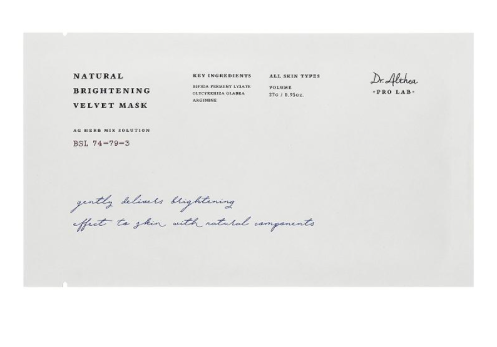 NATURAL
BRIGHTENING
VELVET MASK
AG HERB MIX SOLUTION
BSL 74-79-3
KEY INGREDIENTS
BIFIDA FERMENT LYSATE
GLYCYRRHIZA GLABRA
ARGININE
ALL SKIN TYPES
VOLUME
27g / 0.95oz.
Dr. Althea
·PRO LAB·
gently delivers brightening
effect to skin with natural components